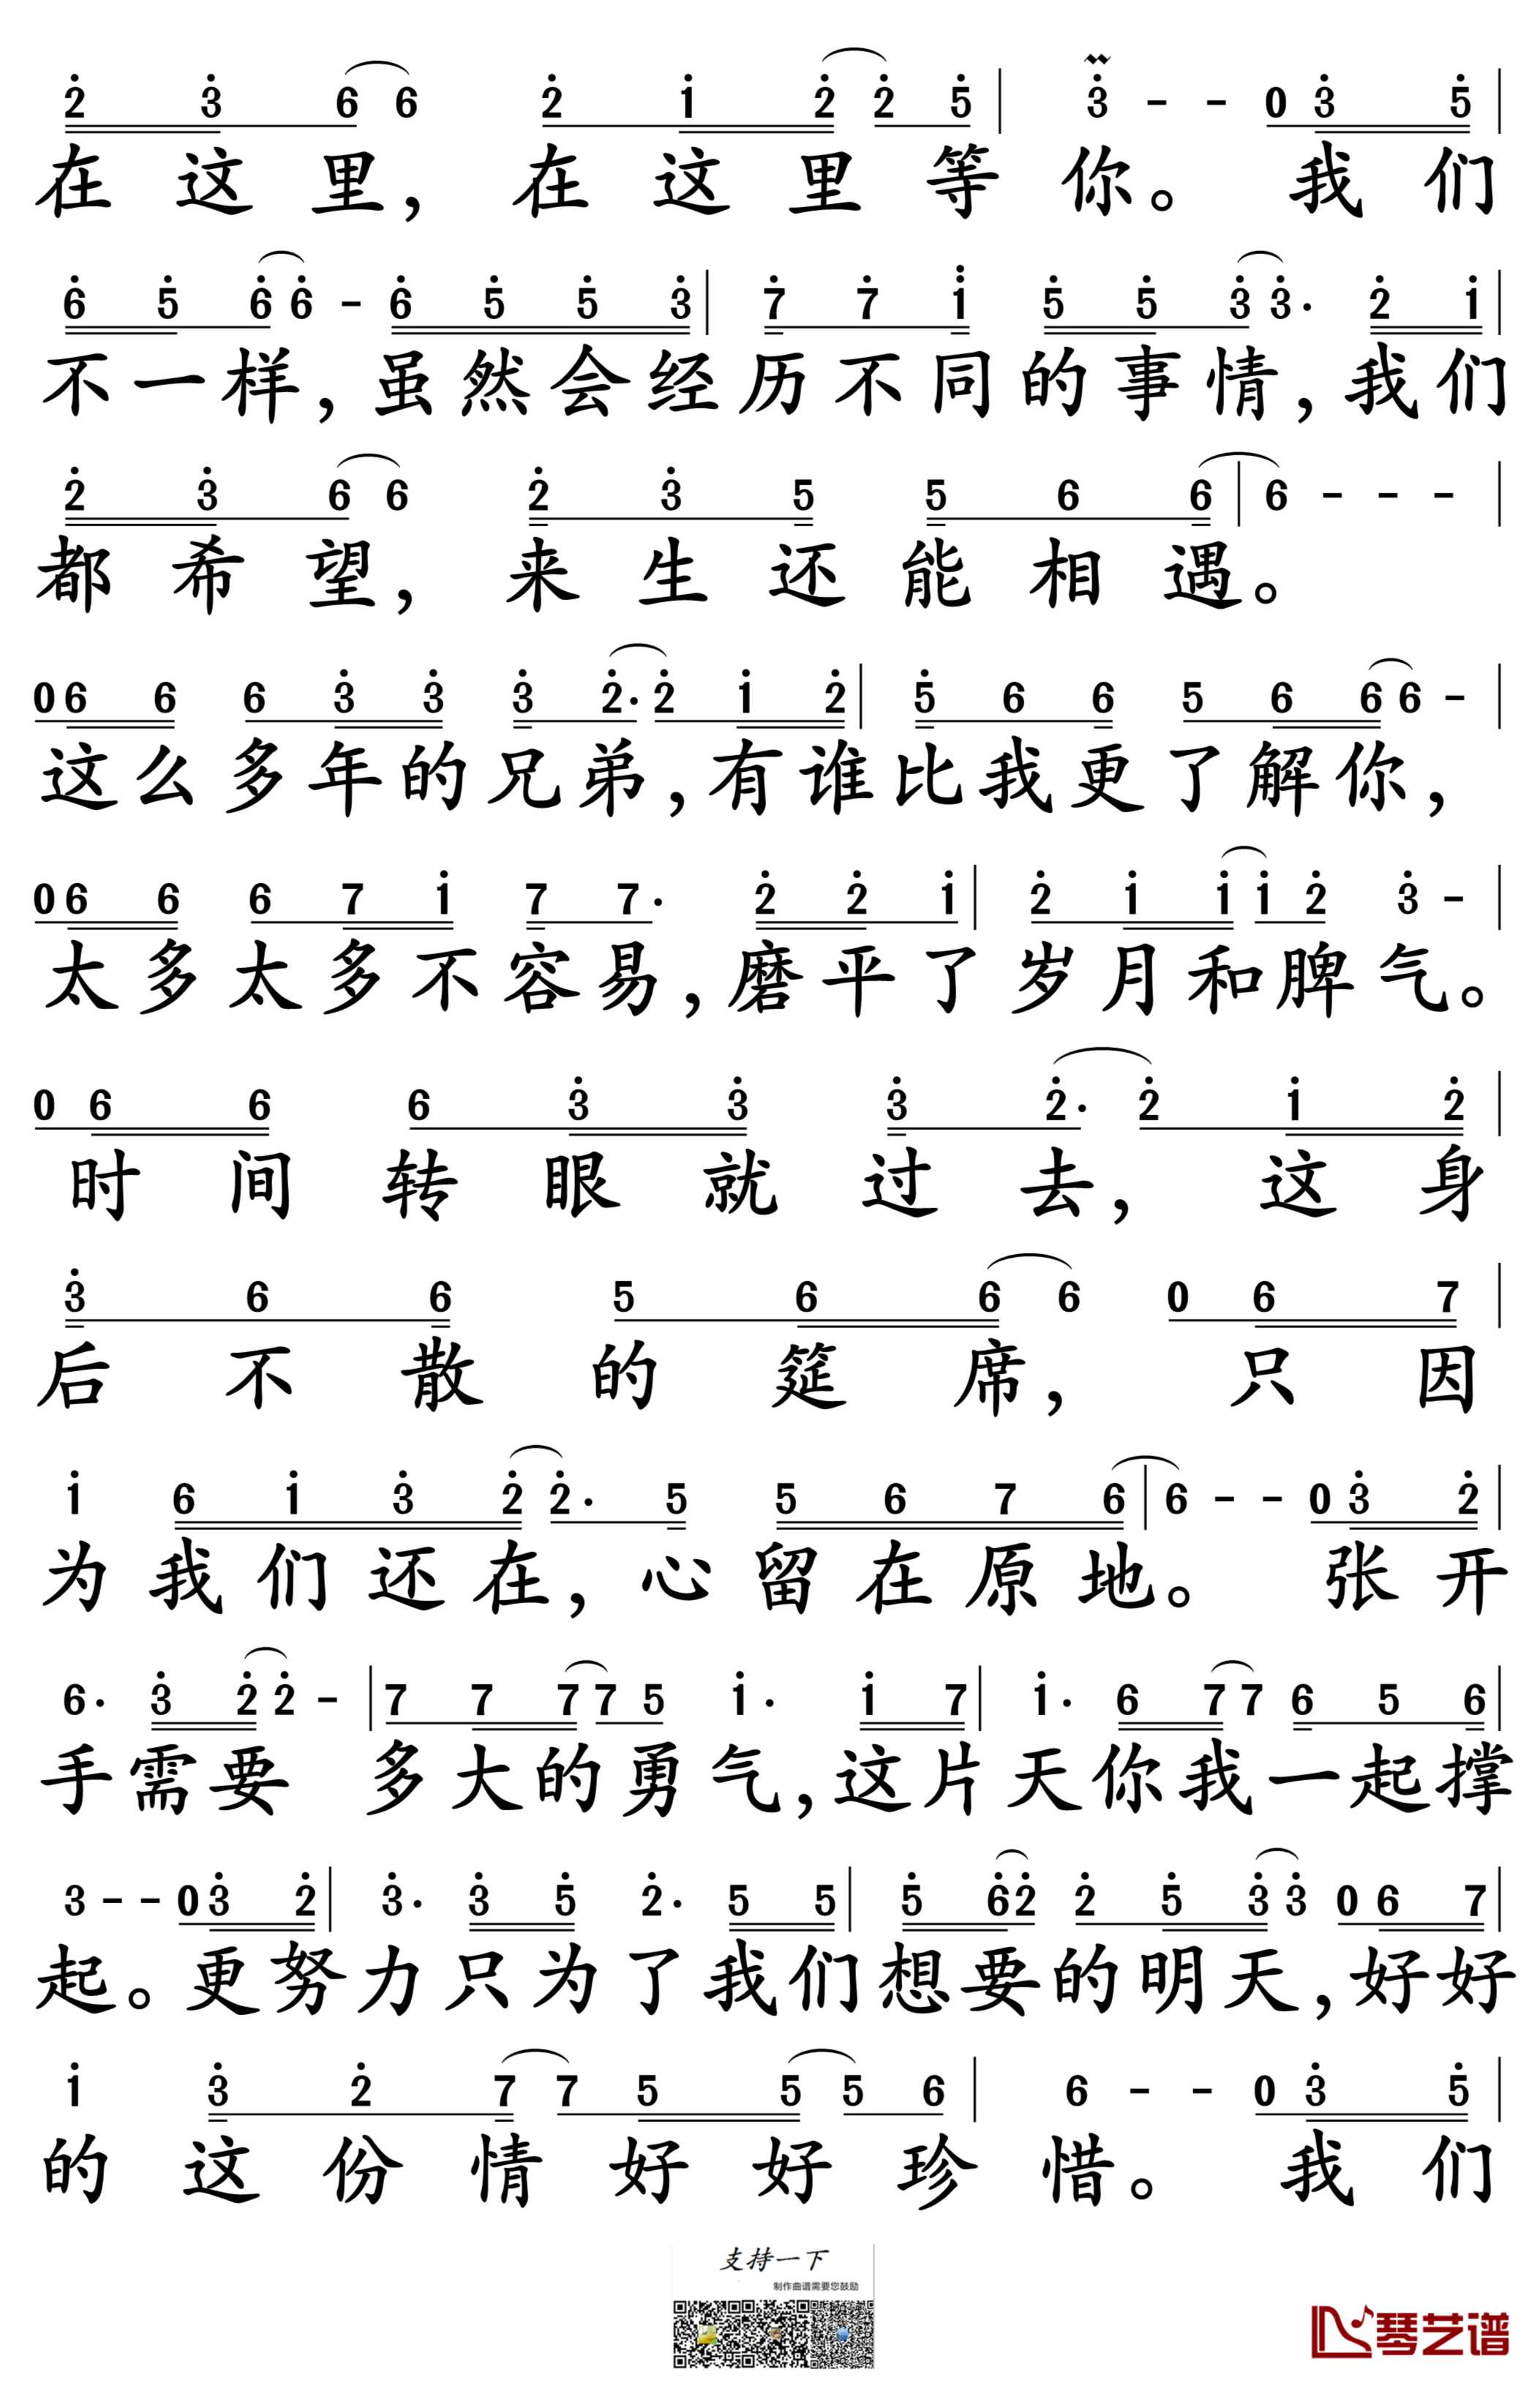 2 3 6 6 2 1 2 2 5 | 3 - - 0 3 5 |
在这里，在这里等你。我们
6 5 6 6 - 6 5 5 3 | 7 7 1 5 5 3 3· 2 1 |
不一样，虽然会经历不同的事情，我们
2 3 6 6 2 3 5 5 6 6 | 6 - - - |
都希望，来生还能相遇。
0 6 6 6 3 3 3 2· 2 1 2 | 5 6 6 5 6 6 6 - |
这么多年的兄弟，有谁比我更了解你，
0 6 6 6 7 1 7 7· 2 2 1 | 2 1 1 1 2 3 - |
太多太多不容易，磨平了岁月和脾气。
0 6 6 6 3 3 3 2· 2 1 2 |
时间转眼就过去，这身
3 6 6 5 6 6 6 0 6 7 |
后不散的筵席，只因
1 6 1 3 2 2· 5 5 6 7 6 | 6 - - 0 3 2 |
为我们还在，心留在原地。张开
6· 3 2 2 - | 7 7 7 7 5 1· 1 7 | 1· 6 7 7 6 5 6 |
手需要多大的勇气，这片天你我一起撑
3 - - 0 3 2 | 3· 3 5 2· 5 5 | 5 6 2 2 5 3 3 0 6 7 |
起。更努力只为了我们想要的明天，好好
1 3 2 7 7 5 5 5 6 | 6 - - 0 3 5 |
的这份情好好珍惜。我们
支持一下
制作曲谱需要您鼓励
琴艺谱